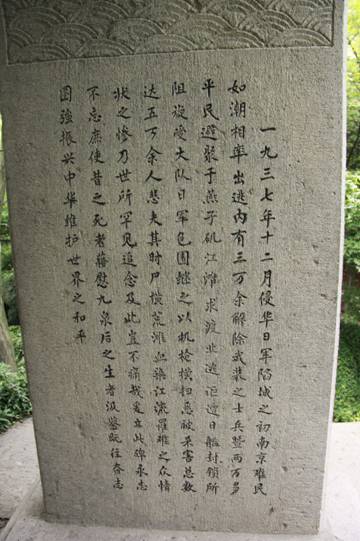 一九三七年十二月侵华日军陷城之初南京难民
如潮相率出逃内有三万余解除武装之士兵暨两万多
平民避聚于燕子矶江滩求渡北逃讵遭日舰封锁所
阻旋受大队日军包围继之以机枪横扫悉被杀害总数
达五万余人悲夫其时尸横荒滩血染江流罹难之众情
状之惨乃世所罕见追念及此岂不痛哉爰立此碑永志
不忘庶使昔之死者藉慰九泉后之生者汲鉴既往奋志
图强振兴中华维护世界之和平